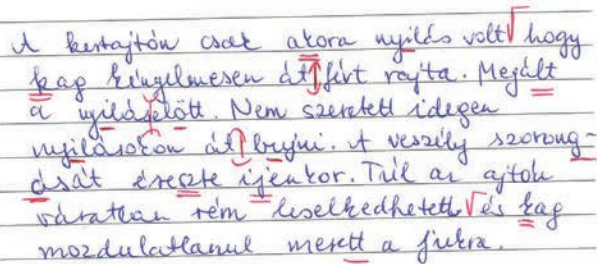 A kertajtón csak akora nyilás volt hogy
kag kényelmesen átfért rajta. Megált
a nyiláselött. Nem szeretett idegen
nyilásokon átbujni. A veszély szorong-
ását éreszte ijenkor. Túl az ajtón
váratlan rém leselkedhetett és kag
mozdulatlanul merett a jukra.